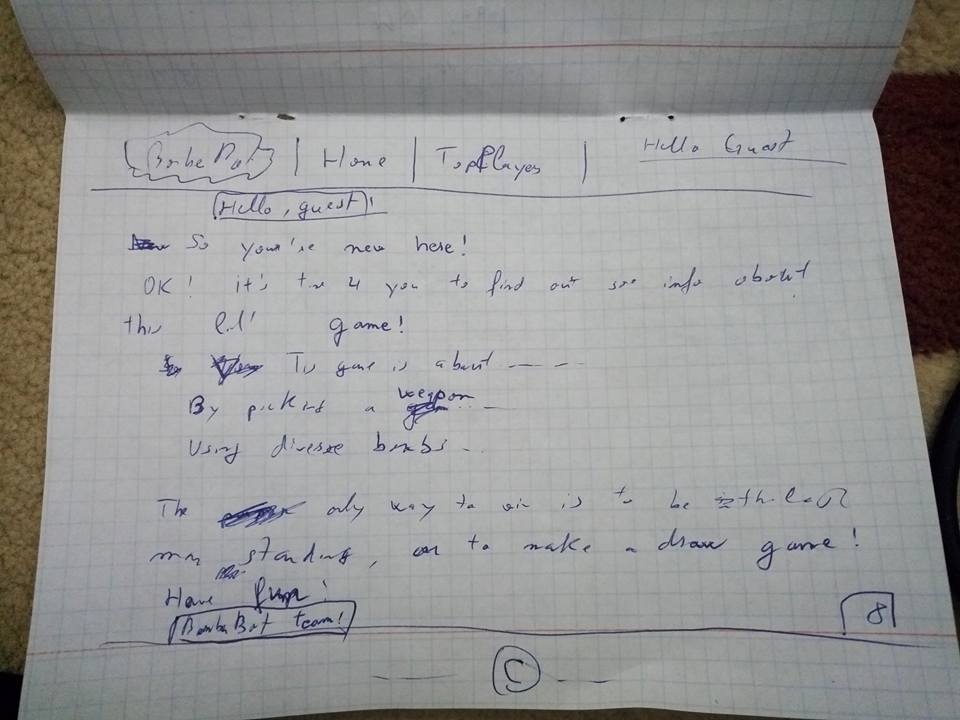 BombeBot | Home | TopPlayes | Hello Guest
Hello, guest!
So your're new here!
OK! it's time 4 you to find out some info about
this lil' game!
The game is about -----
By picking a weapon ...
Using diverse bombs ...
The only way to win is to be the last
man standing, or to make a draw game!
Have fun!
BombeBot team!
8
C